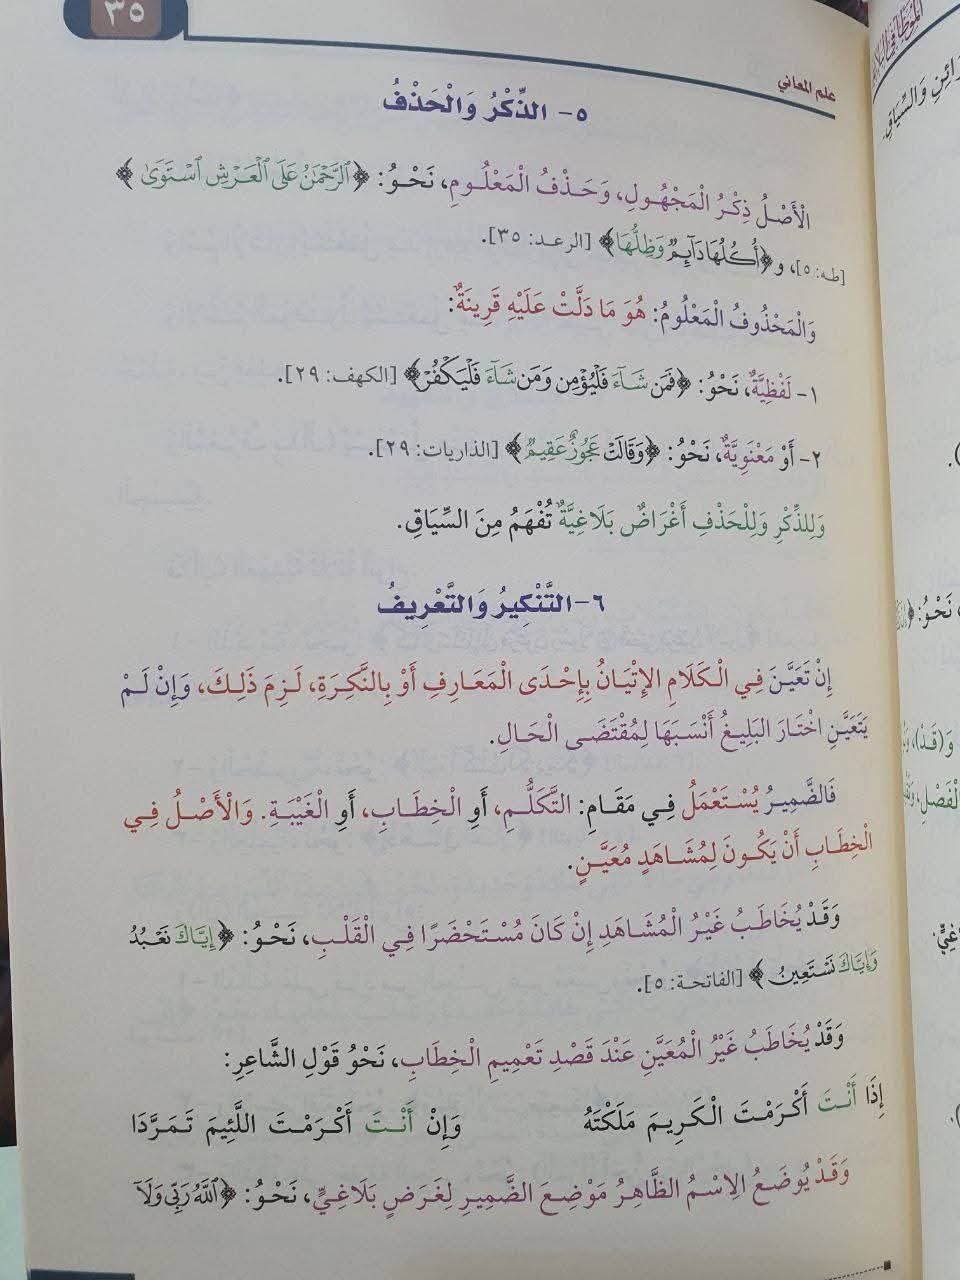 ٣٥
علم المعاني
٥- الذِّكْرُ وَالْحَذْفُ
الْأَصْلُ ذِكْرُ الْمَجْهُولِ، وَحَذْفُ الْمَعْلُومِ، نَحْوُ: ﴿الرَّحْمَٰنُ عَلَى الْعَرْشِ اسْتَوَىٰ﴾
[طه: ٥]، و﴿أُكُلُهَا دَآئِمٌ وَظِلُّهَا﴾ [الرعد: ٣٥].
وَالْمَحْذُوفُ الْمَعْلُومُ: هُوَ مَا دَلَّتْ عَلَيْهِ قَرِينَةٌ:
١- لَفْظِيَّةٌ، نَحْوُ: ﴿فَمَن شَآءَ فَلْيُؤْمِن وَمَن شَآءَ فَلْيَكْفُرْ﴾ [الكهف: ٢٩].
٢- أَوْ مَعْنَوِيَّةٌ، نَحْوُ: ﴿وَقَالَتْ عَجُوزٌ عَقِيمٌ﴾ [الذاريات: ٢٩].
وَلِلذِّكْرِ وَلِلْحَذْفِ أَغْرَاضٌ بَلَاغِيَّةٌ تُفْهَمُ مِنَ السِّيَاقِ.
٦- التَّنْكِيرُ وَالتَّعْرِيفُ
إِنْ تَعَيَّنَ فِي الْكَلَامِ الإِتْيَانُ بِإِحْدَى الْمَعَارِفِ أَوْ بِالنَّكِرَةِ، لَزِمَ ذَلِكَ، وَإِنْ لَمْ
يَتَعَيَّنِ اخْتَارَ البَلِيغُ أَنْسَبَهَا لِمُقْتَضَى الْحَالِ.
فَالضَّمِيرُ يُسْتَعْمَلُ فِي مَقَامِ: التَّكَلُّمِ، أَوِ الْخِطَابِ، أَوِ الْغَيْبَةِ. وَالْأَصْلُ فِي
الْخِطَابِ أَنْ يَكُونَ لِمُشَاهَدٍ مُعَيَّنٍ.
وَقَدْ يُخَاطَبُ غَيْرُ الْمُشَاهَدِ إِنْ كَانَ مُسْتَحْضَرًا فِي الْقَلْبِ، نَحْوُ: ﴿إِيَّاكَ نَعْبُدُ
وَإِيَّاكَ نَسْتَعِينُ﴾ [الفاتحة: ٥].
وَقَدْ يُخَاطَبُ غَيْرُ الْمُعَيَّنِ عِنْدَ قَصْدِ تَعْمِيمِ الْخِطَابِ، نَحْوُ قَوْلِ الشَّاعِرِ:
إِذَا أَنْتَ أَكْرَمْتَ الْكَرِيمَ مَلَكْتَهُ وَإِنْ أَنْتَ أَكْرَمْتَ اللَّئِيمَ تَمَرَّدَا
وَقَدْ يُوضَعُ الِاسْمُ الظَّاهِرُ مَوْضِعَ الضَّمِيرِ لِغَرَضٍ بَلَاغِيٍّ، نَحْوُ: ﴿اللَّهُ رَبِّي وَلَآ
وَالسِّيَاقِ.
نَحْوُ:
وَ(قَدْ)،